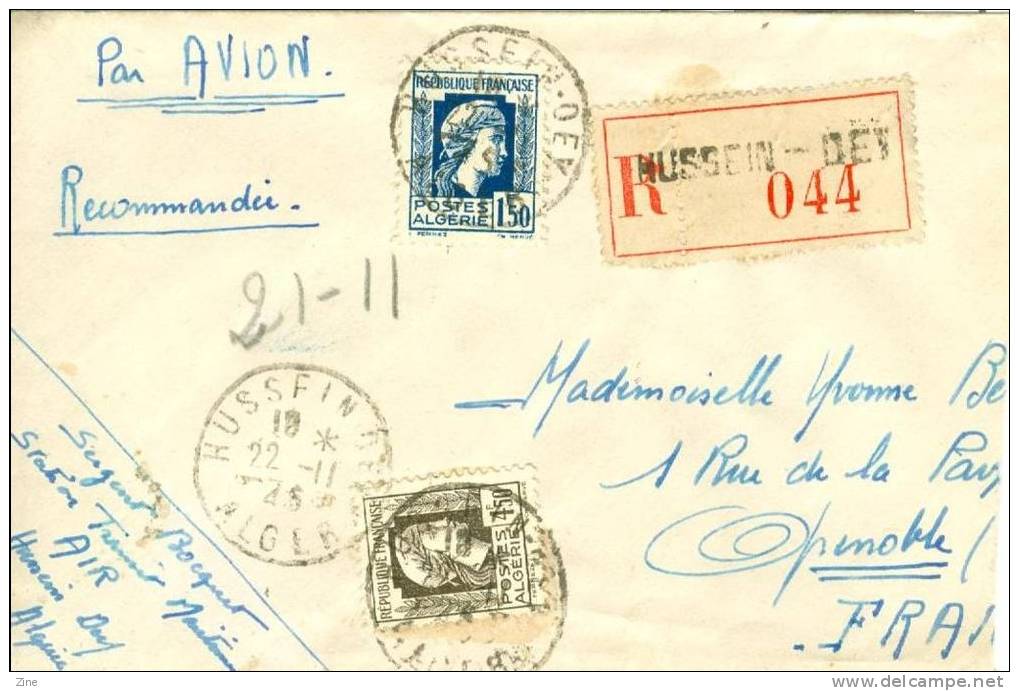 Par AVION.
Recommandée.
RÉPUBLIQUE FRANÇAISE
POSTES
ALGÉRIE 1F50
HUSSEIN-DEY
HUSSEIN-DEY
R 044
21-11
HUSSEIN
18 *
22-11
45
ALGER
Mademoiselle Yvonne Be
1 Rue de la Paix
Grenoble (
FRAN
RÉPUBLIQUE FRANÇAISE
POSTES
ALGÉRIE 4F50
ALGER
Sergent Bocquet
Station Transit Maritime
AIR
Hussein Dey
Algérie
Zine
www.delcampe.net